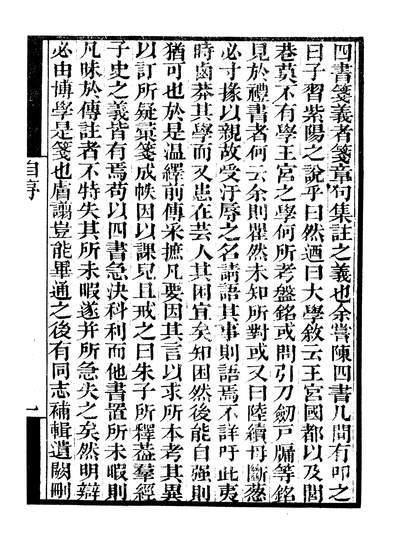 四書箋義者箋章句集註之義也余嘗陳四書几間有叩之
曰子習紫陽之說乎曰然迺曰大學敘云王宮國都以及閭
巷莫不有學王宮之學何所考盤銘或問引刀劒戸牖等銘
見於禮書者何云余則瞿然未知所對或又曰陸續母斷葱
必寸掾以親故受汙辱之名請語其事則語焉不詳吁此夷
時鹵莽其學而又患在芸人其困宜矣知困然後能自强則
猶可也於是温繹前傳采摭凡要因其言以求所本考其異
以訂所疑箋成帙因以課兒且戒之曰朱子所釋葢羣經
子史之義皆有焉苟以四書急决科利而他書置所未暇則
凡昧於傳註者不特失其所未暇遂并所急失之矣然明辯
必由博學是箋也膚謭豈能畢通之後有同志補輯遺闕刪
自序
一